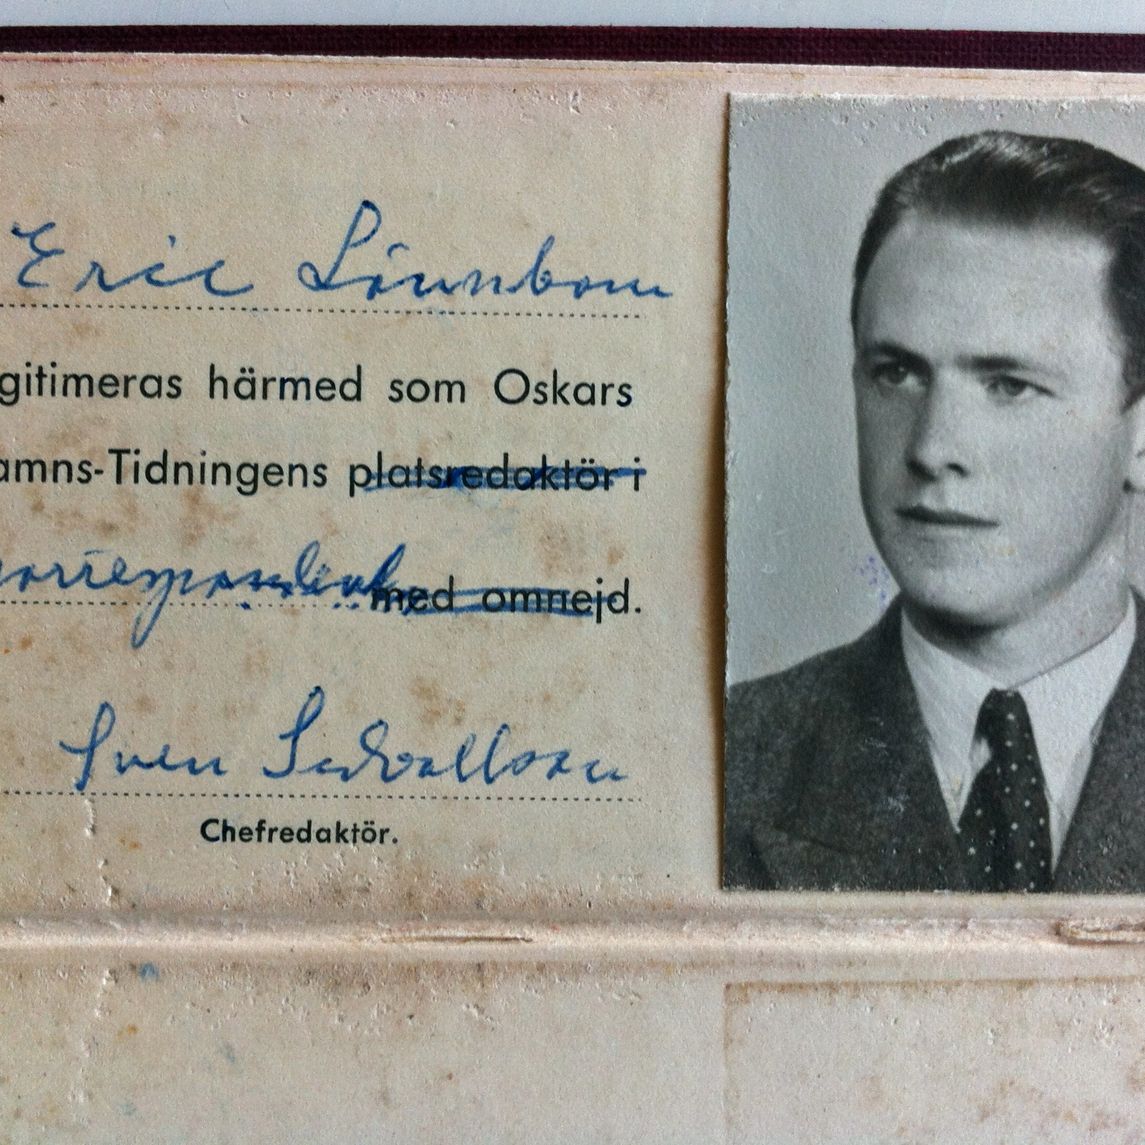 Eric Lönnbom
gitimeras härmed som Oskars
amns-Tidningens platsredaktör i
korrespondent med omnejd.
Sven
Chefredaktör.